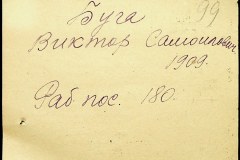 99
Буга
Виктор Самойлович
1909.
Раб пос. 180.